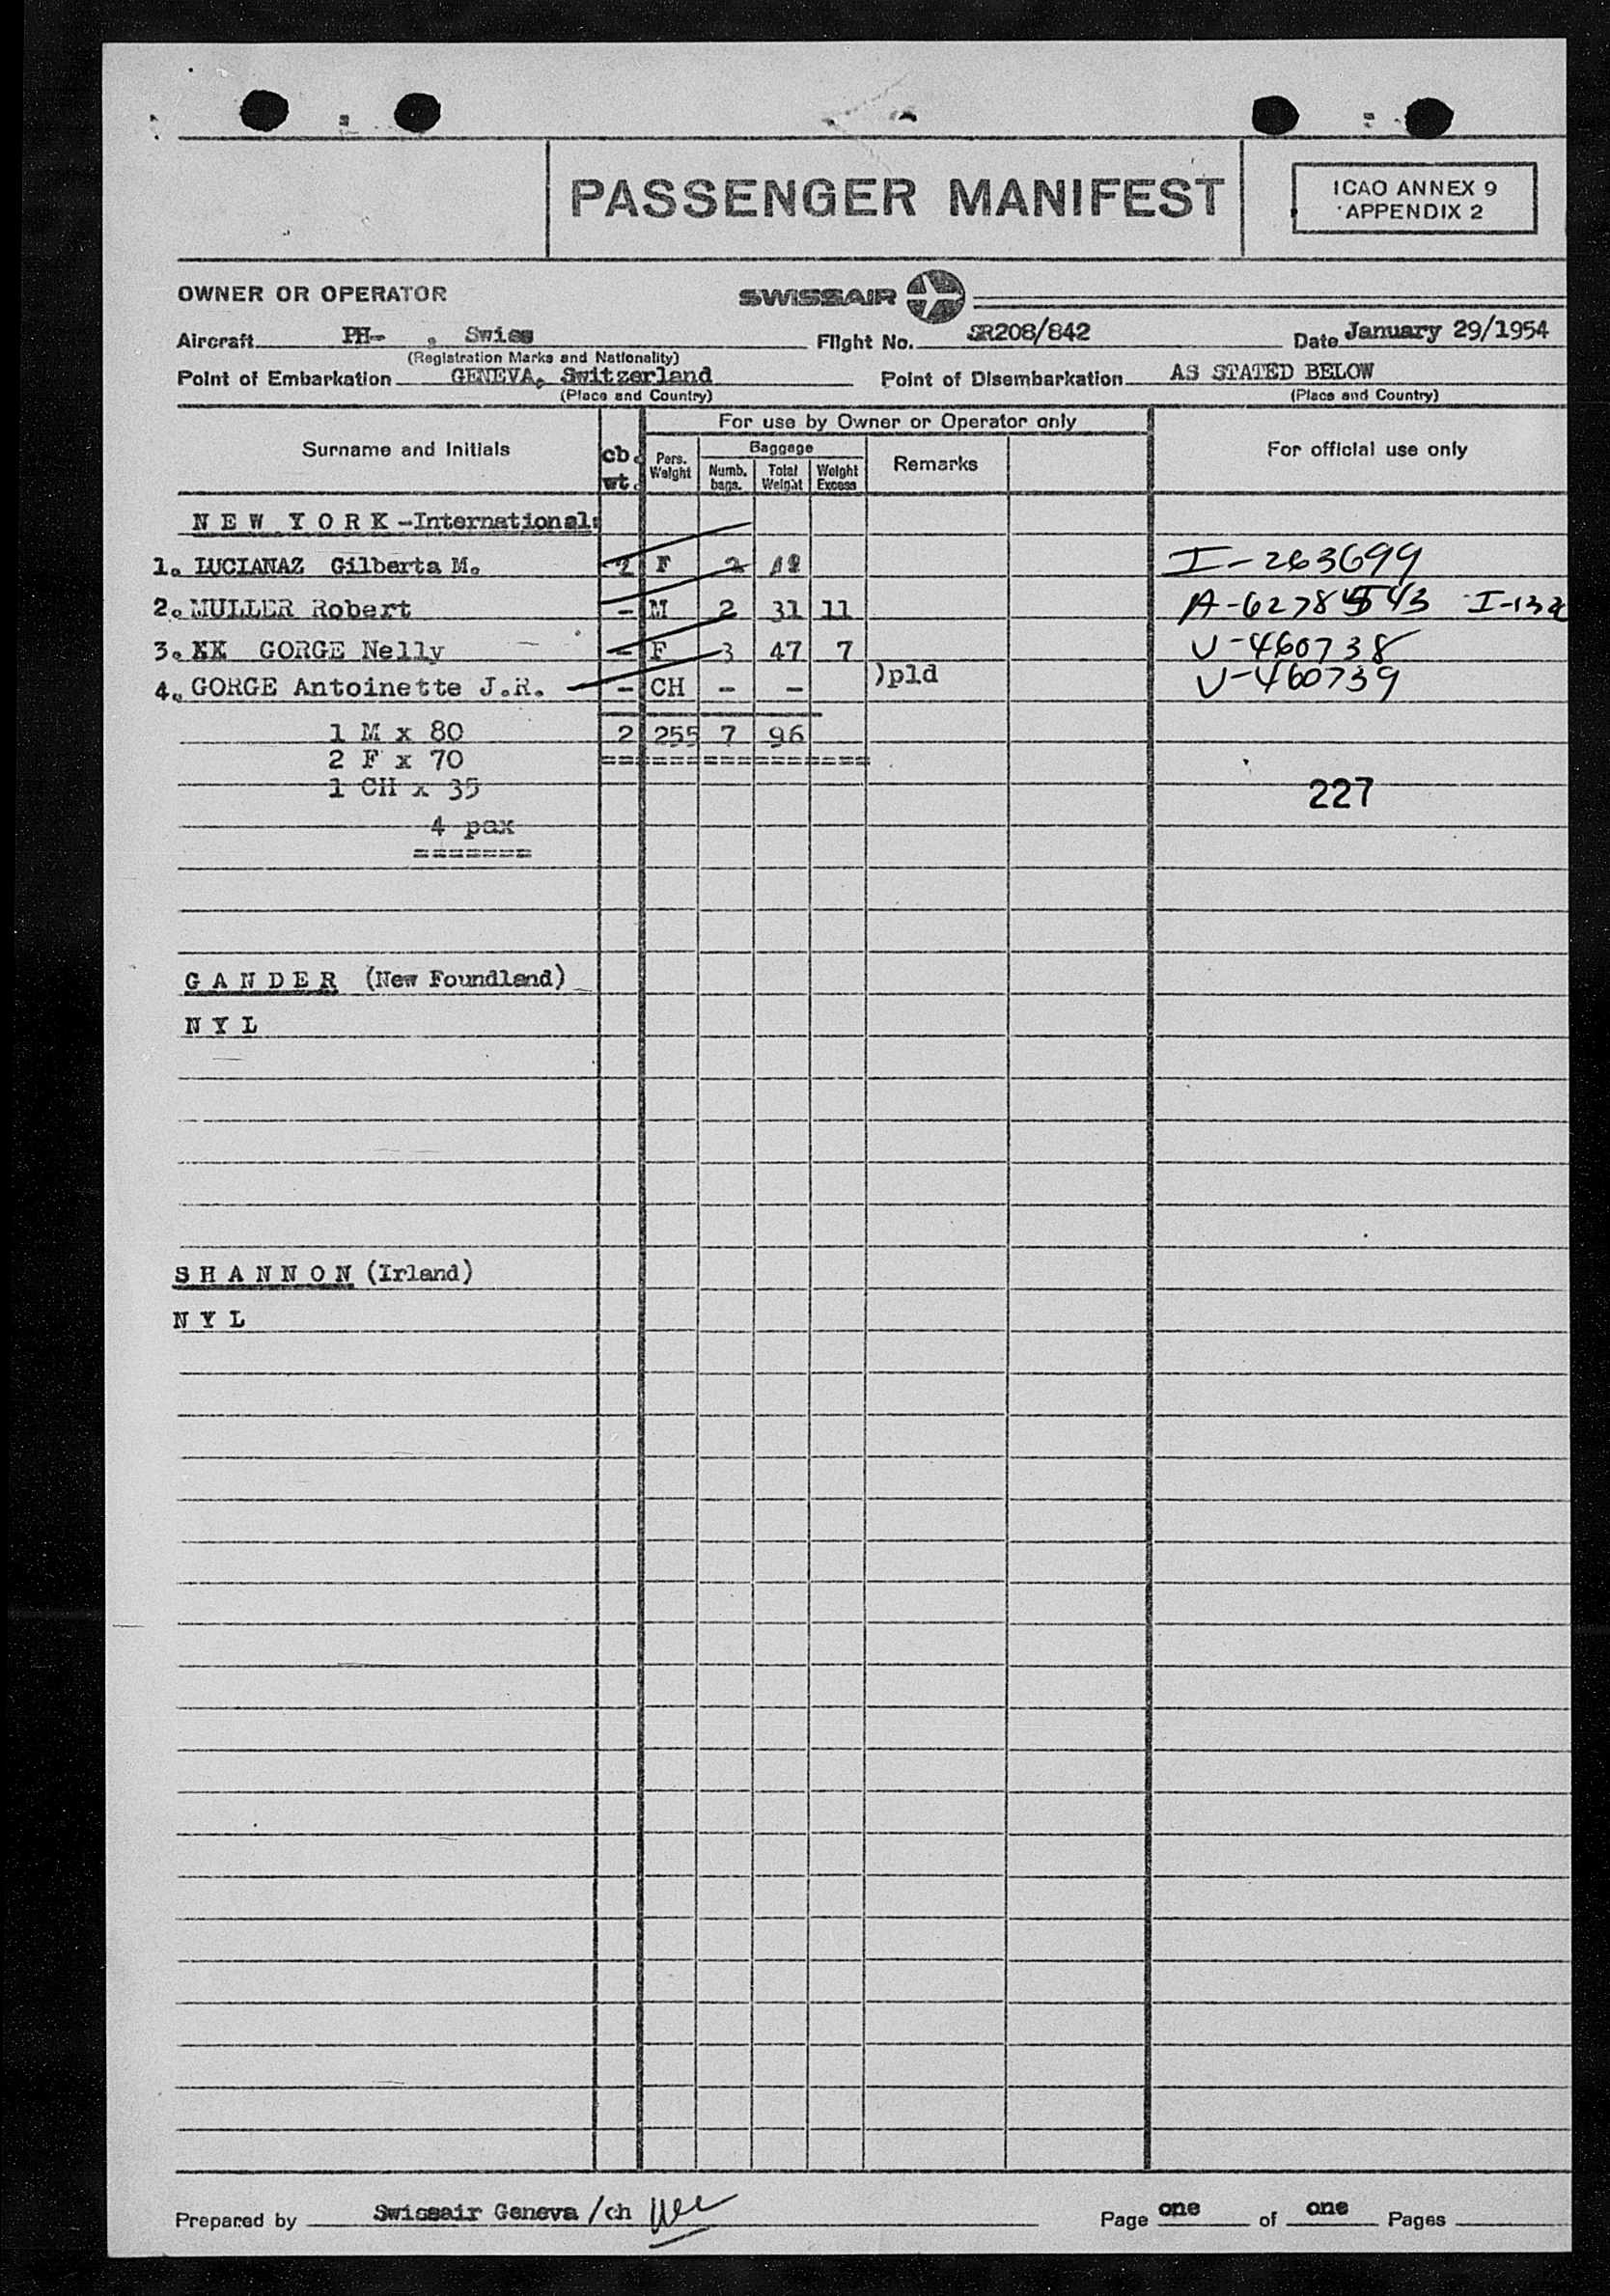 PASSENGER MANIFEST
ICAO ANNEX 9
APPENDIX 2
OWNER OR OPERATOR
SWISSAIR
Aircraft PH- , Swiss Flight No. SR208/842 Date January 29/1954
(Registration Marks and Nationality)
Point of Embarkation GENEVA, Switzerland Point of Disembarkation AS STATED BELOW
(Place and Country) (Place and Country)
For use by Owner or Operator only
Surname and Initials cb. wt. Pers. Weight Baggage Numb. bags. Total Weight Weight Excess Remarks For official use only
NEW YORK-International:
1. LUCIANAZ Gilberta M. 2 F 2 I-263699
2. MULLER Robert - M 2 31 11 I-132
3. XX GORGE Nelly - F 3 47 7 V-460738
4. GORGE Antoinette J.R. - CH - - )pld V-460739
1 M x 80 2 255 7 96
2 F x 70 ================
1 CH x 35 227
4 pax
=======
GANDER (New Foundland)
NYL
SHANNON (Irland)
NYL
Prepared by Swissair Geneva /ch Page one of one Pages